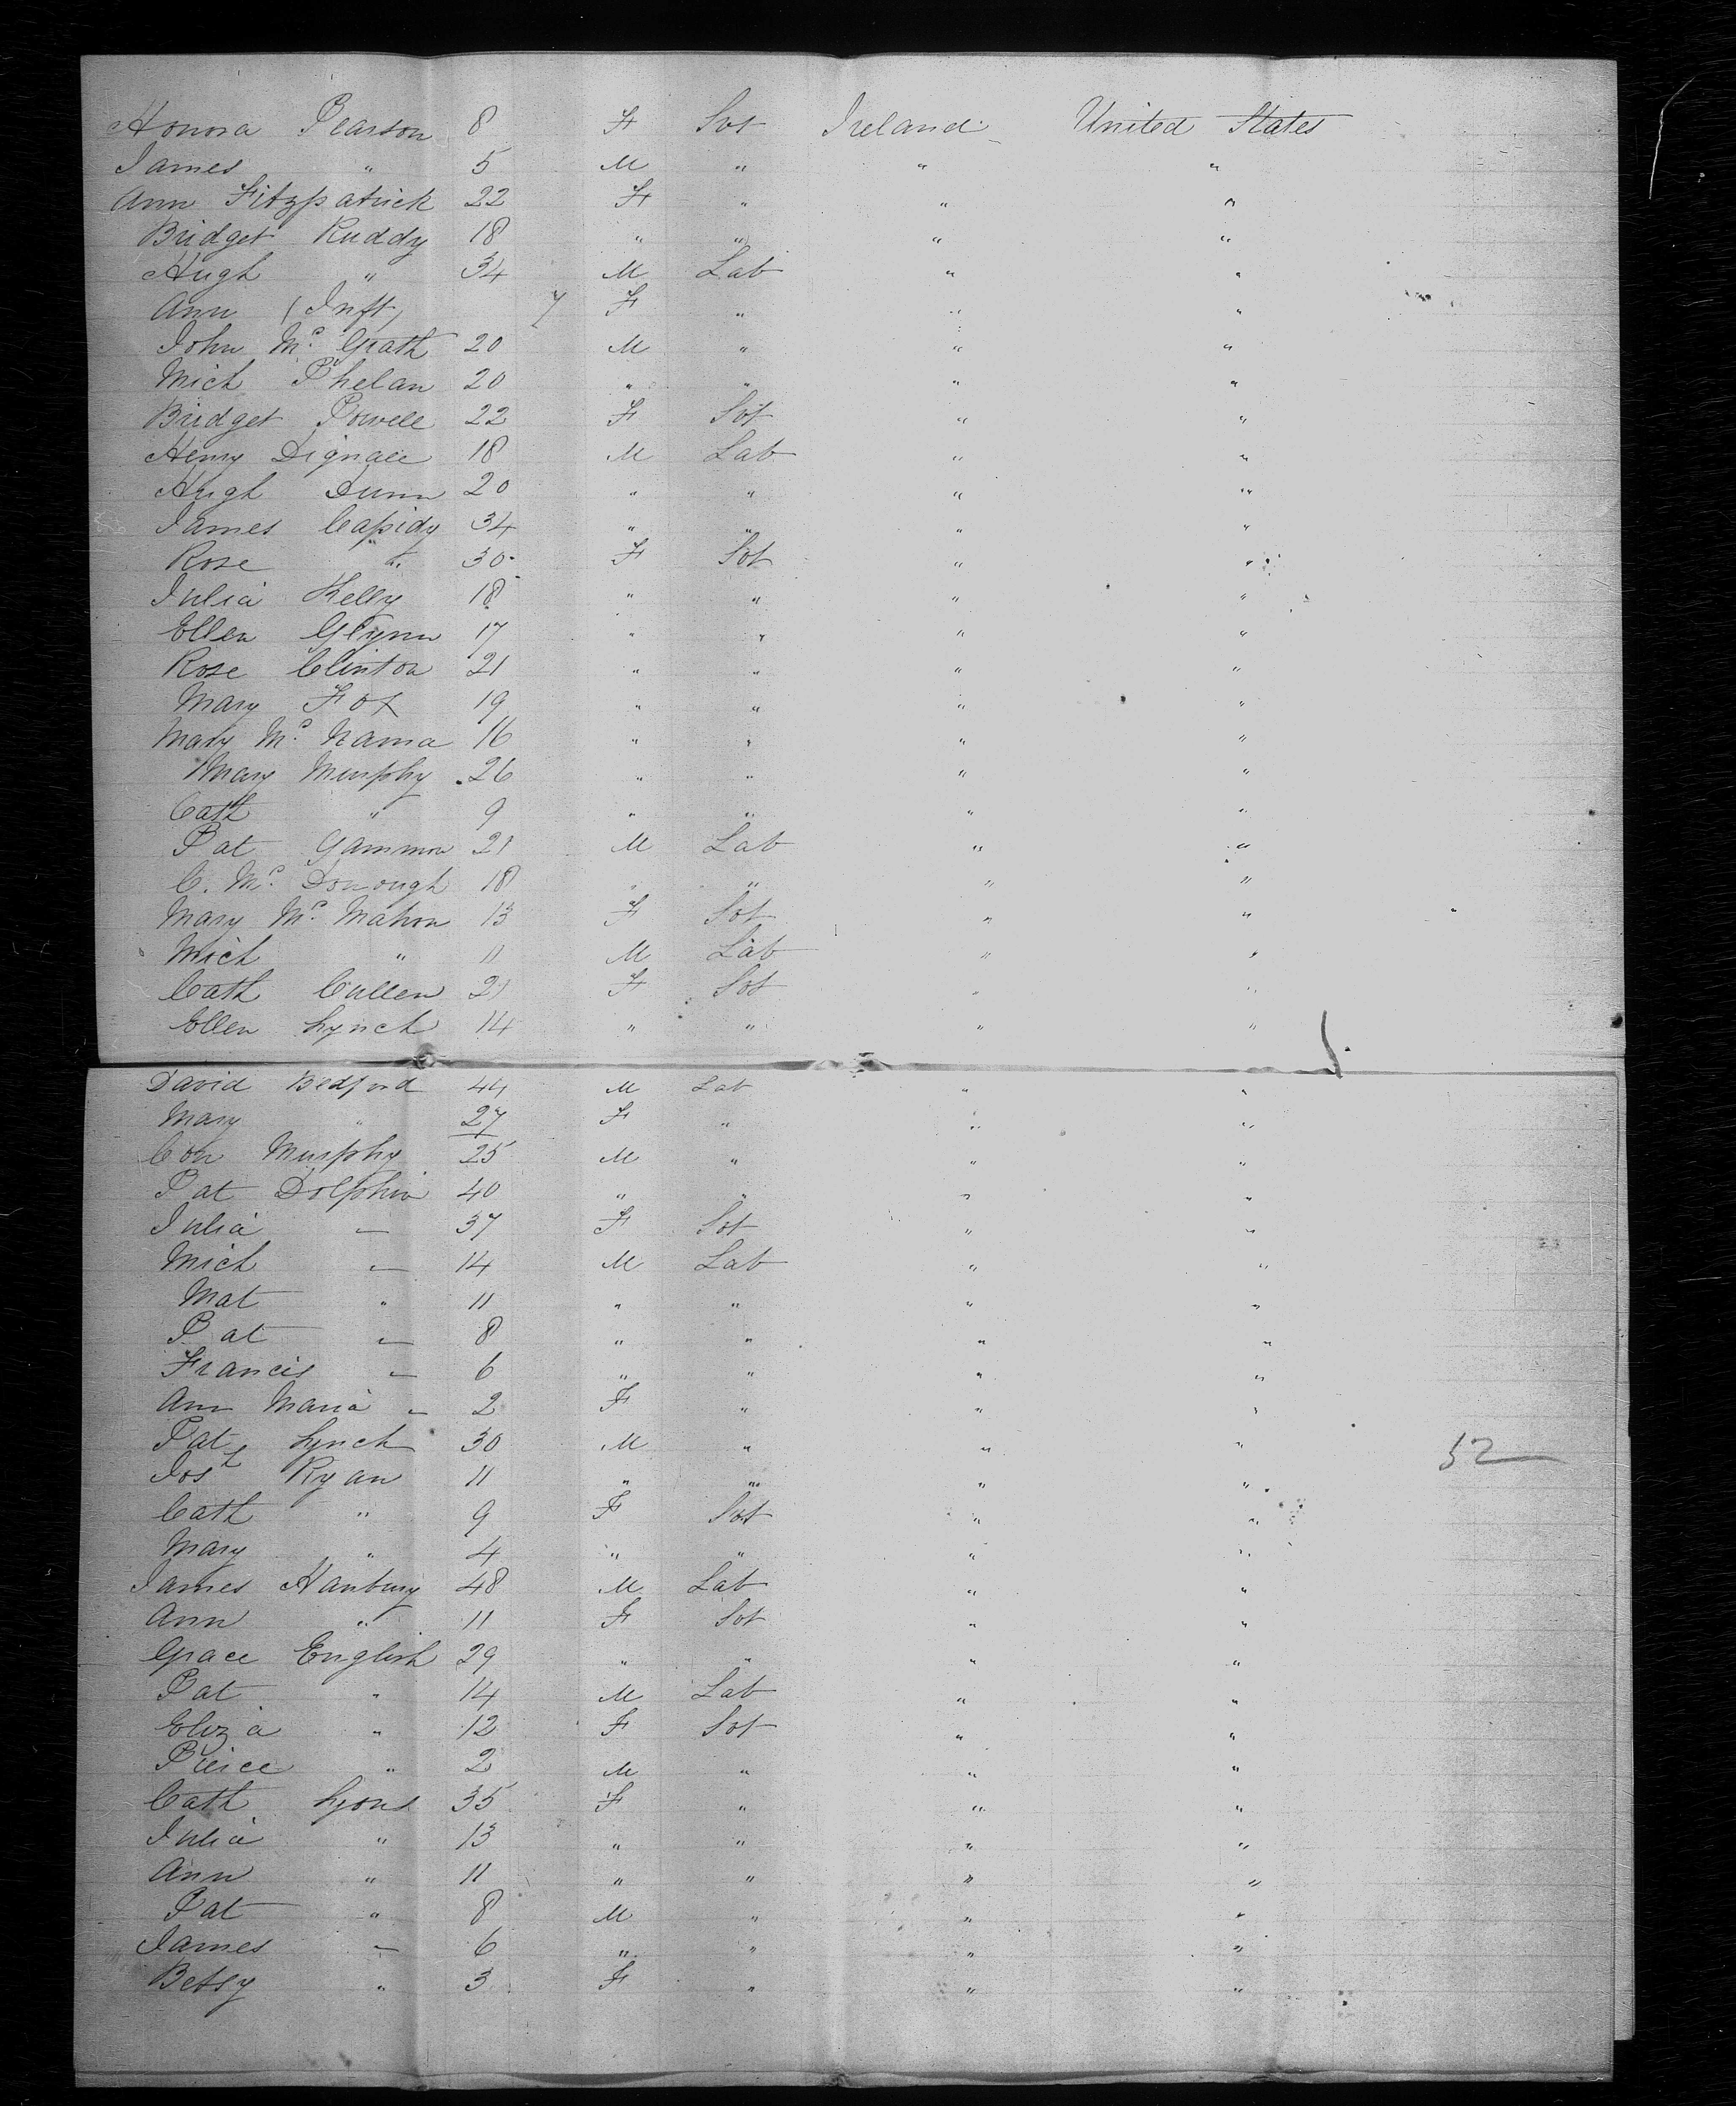 Honora Pearson 8 F Svt Ireland United States
James " 5 M " " "
Ann Fitzpatrick 22 F " " "
Bridget Ruddy 18 " " " "
Hugh " 34 M Lab " "
Ann (Inft) 7 F " " "
John Mc Grath 20 M " " "
Mich Phelan 20 " " " "
Bridget Powell 22 F Svt " "
Henry Dignall 18 M Lab " "
Hugh Dunn 20 " " " "
James Cassidy 34 " " " "
Rose " 30 F Svt " "
Julia Kelly 18 " " " "
Ellen Glynn 17 " " " "
Rose Clinton 21 " " " "
Mary Fox 19 " " " "
Mary Mc Nama 16 " " " "
Mary Murphy 26 " " " "
Cath " 9 " " " "
Pat Gammon 21 M Lab " "
C. Mc Donough 18 " " " "
Mary Mc Mahon 13 F Svt " "
Mich " 11 M Lab " "
Cath Cullen 21 F Svt " "
Ellen Lynch 14 " " " "
David Bedford 44 M Lab " "
Mary " 27 F " " "
Con Murphy 25 M " " "
Pat Dolphin 40 " " " "
Julia " 37 F Svt " "
Mich " 14 M Lab " "
Mat " 11 " " " "
Pat " 8 " " " "
Francis " 6 " " " "
Ann Maria " 2 F " " "
Pat Lynch 30 M " " "
52
Josh Ryan 11 " " " "
Cath " 9 F Svt " "
Mary " 4 " " " "
James Hanbury 48 M Lab " "
Ann " 11 F Svt " "
Grace English 29 " " " "
Pat " 14 M Lab " "
Eliza " 12 F Svt " "
Pierce " 2 M " " "
Cath Lyons 35 F " " "
Julia " 13 " " " "
Ann " 11 " " " "
Pat " 8 M " " "
James " 6 " " " "
Betsy " 3 F " " "